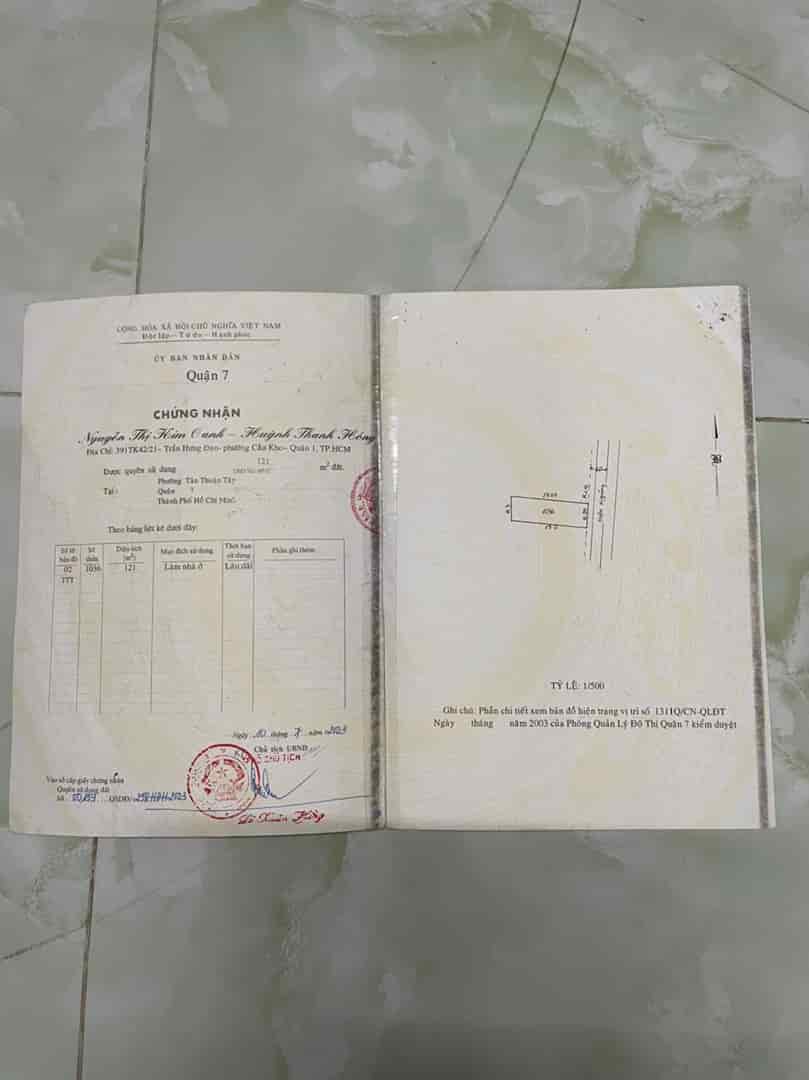 CỘNG HÒA XÃ HỘI CHỦ NGHĨA VIỆT NAM
Độc lập – Tự do – Hạnh phúc
ỦY BAN NHÂN DÂN
Quận 7
CHỨNG NHẬN
Nguyễn Thị Kim Oanh – Huỳnh Thanh Hồng
Địa Chỉ: 391TK42/21- Trần Hưng Đạo- phường Cầu Kho- Quận 1, TP.HCM
Được quyền sử dụng 121 m² đất.
Tại: Phường Tân Thuận Tây
Quận 7
Thành Phố Hồ Chí Minh
Theo bảng liệt kê dưới đây:
Số tờ bản đồ Số thửa Diện tích (m²) Mục đích sử dụng Thời hạn sử dụng Phần ghi thêm
02 1036 121 Làm nhà ở Lâu dài
TTT
Ngày 10 tháng 7 năm 2003
Chủ tịch UBND
CHỦ TỊCH
Vào sổ cấp giấy chứng nhận
Quyền sử dụng đất
Số QSDĐ/
TỶ LỆ: 1/500
Ghi chú: Phần chi tiết xem bản đồ hiện trạng vị trí số 1311Q/CN-QLĐT
Ngày tháng năm 2003 của Phòng Quản Lý Đô Thị Quận 7 kiểm duyệt